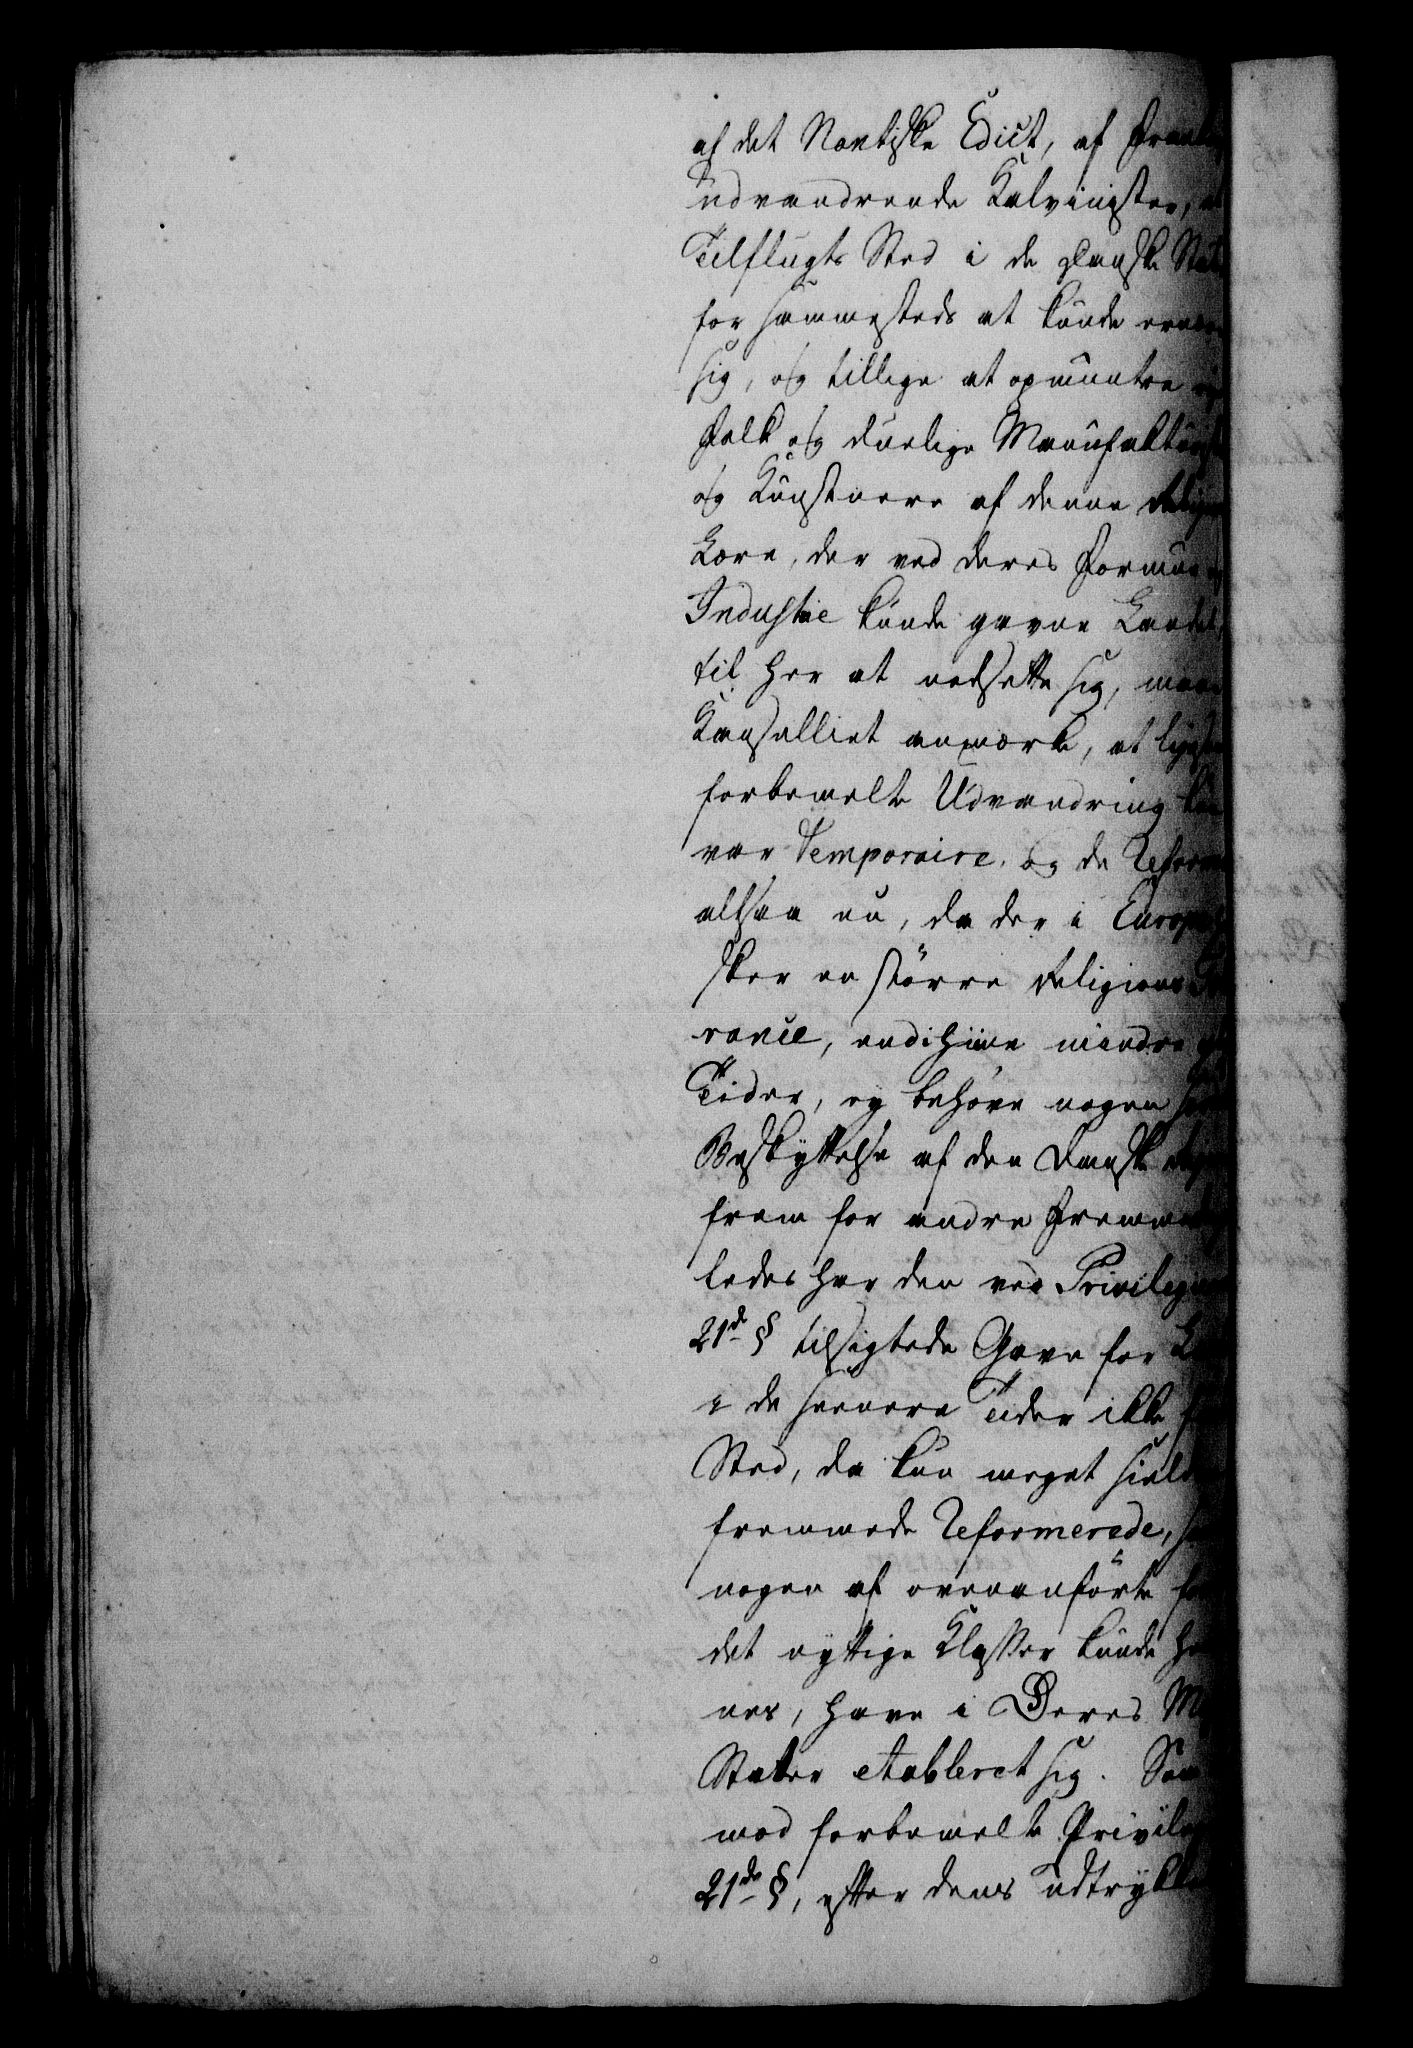 af det Nantiske Edict, af
udvandrende Kalvinister,
Tilflugts Sted i de Danske
for sammesteds at kunde
sig, og tillige at opmuntre
Folk og duelige Manufakturi
og Kunstnere af denne
Lære, der ved deres Formue
Industrie kunde gavne Landet,
til her at nedsætte sig, maae
Kanselliet anmærke, at
forbemelte Udvandring kun
var Temporaire, og de Reform
altsaa nu, da der i Europa
sker en större Religions
rance, end i hiine mindre
Tider, ey behöve nogen
Beskyttelse af den Danske
frem for andre Fremmede
ledes har den ved Privilegier
21de § tilsigtede Gavn for
i de seenere Tider ikke
Sted, da kun meget sielden
fremmede Reformerede,
nogen af ovenanförte for
det nyttige Klasser kunde hen
nes, have i Deres M
Stater etableret sig. Saa
mod forbemelte Privileg
21de §, efter dens Udtrykke